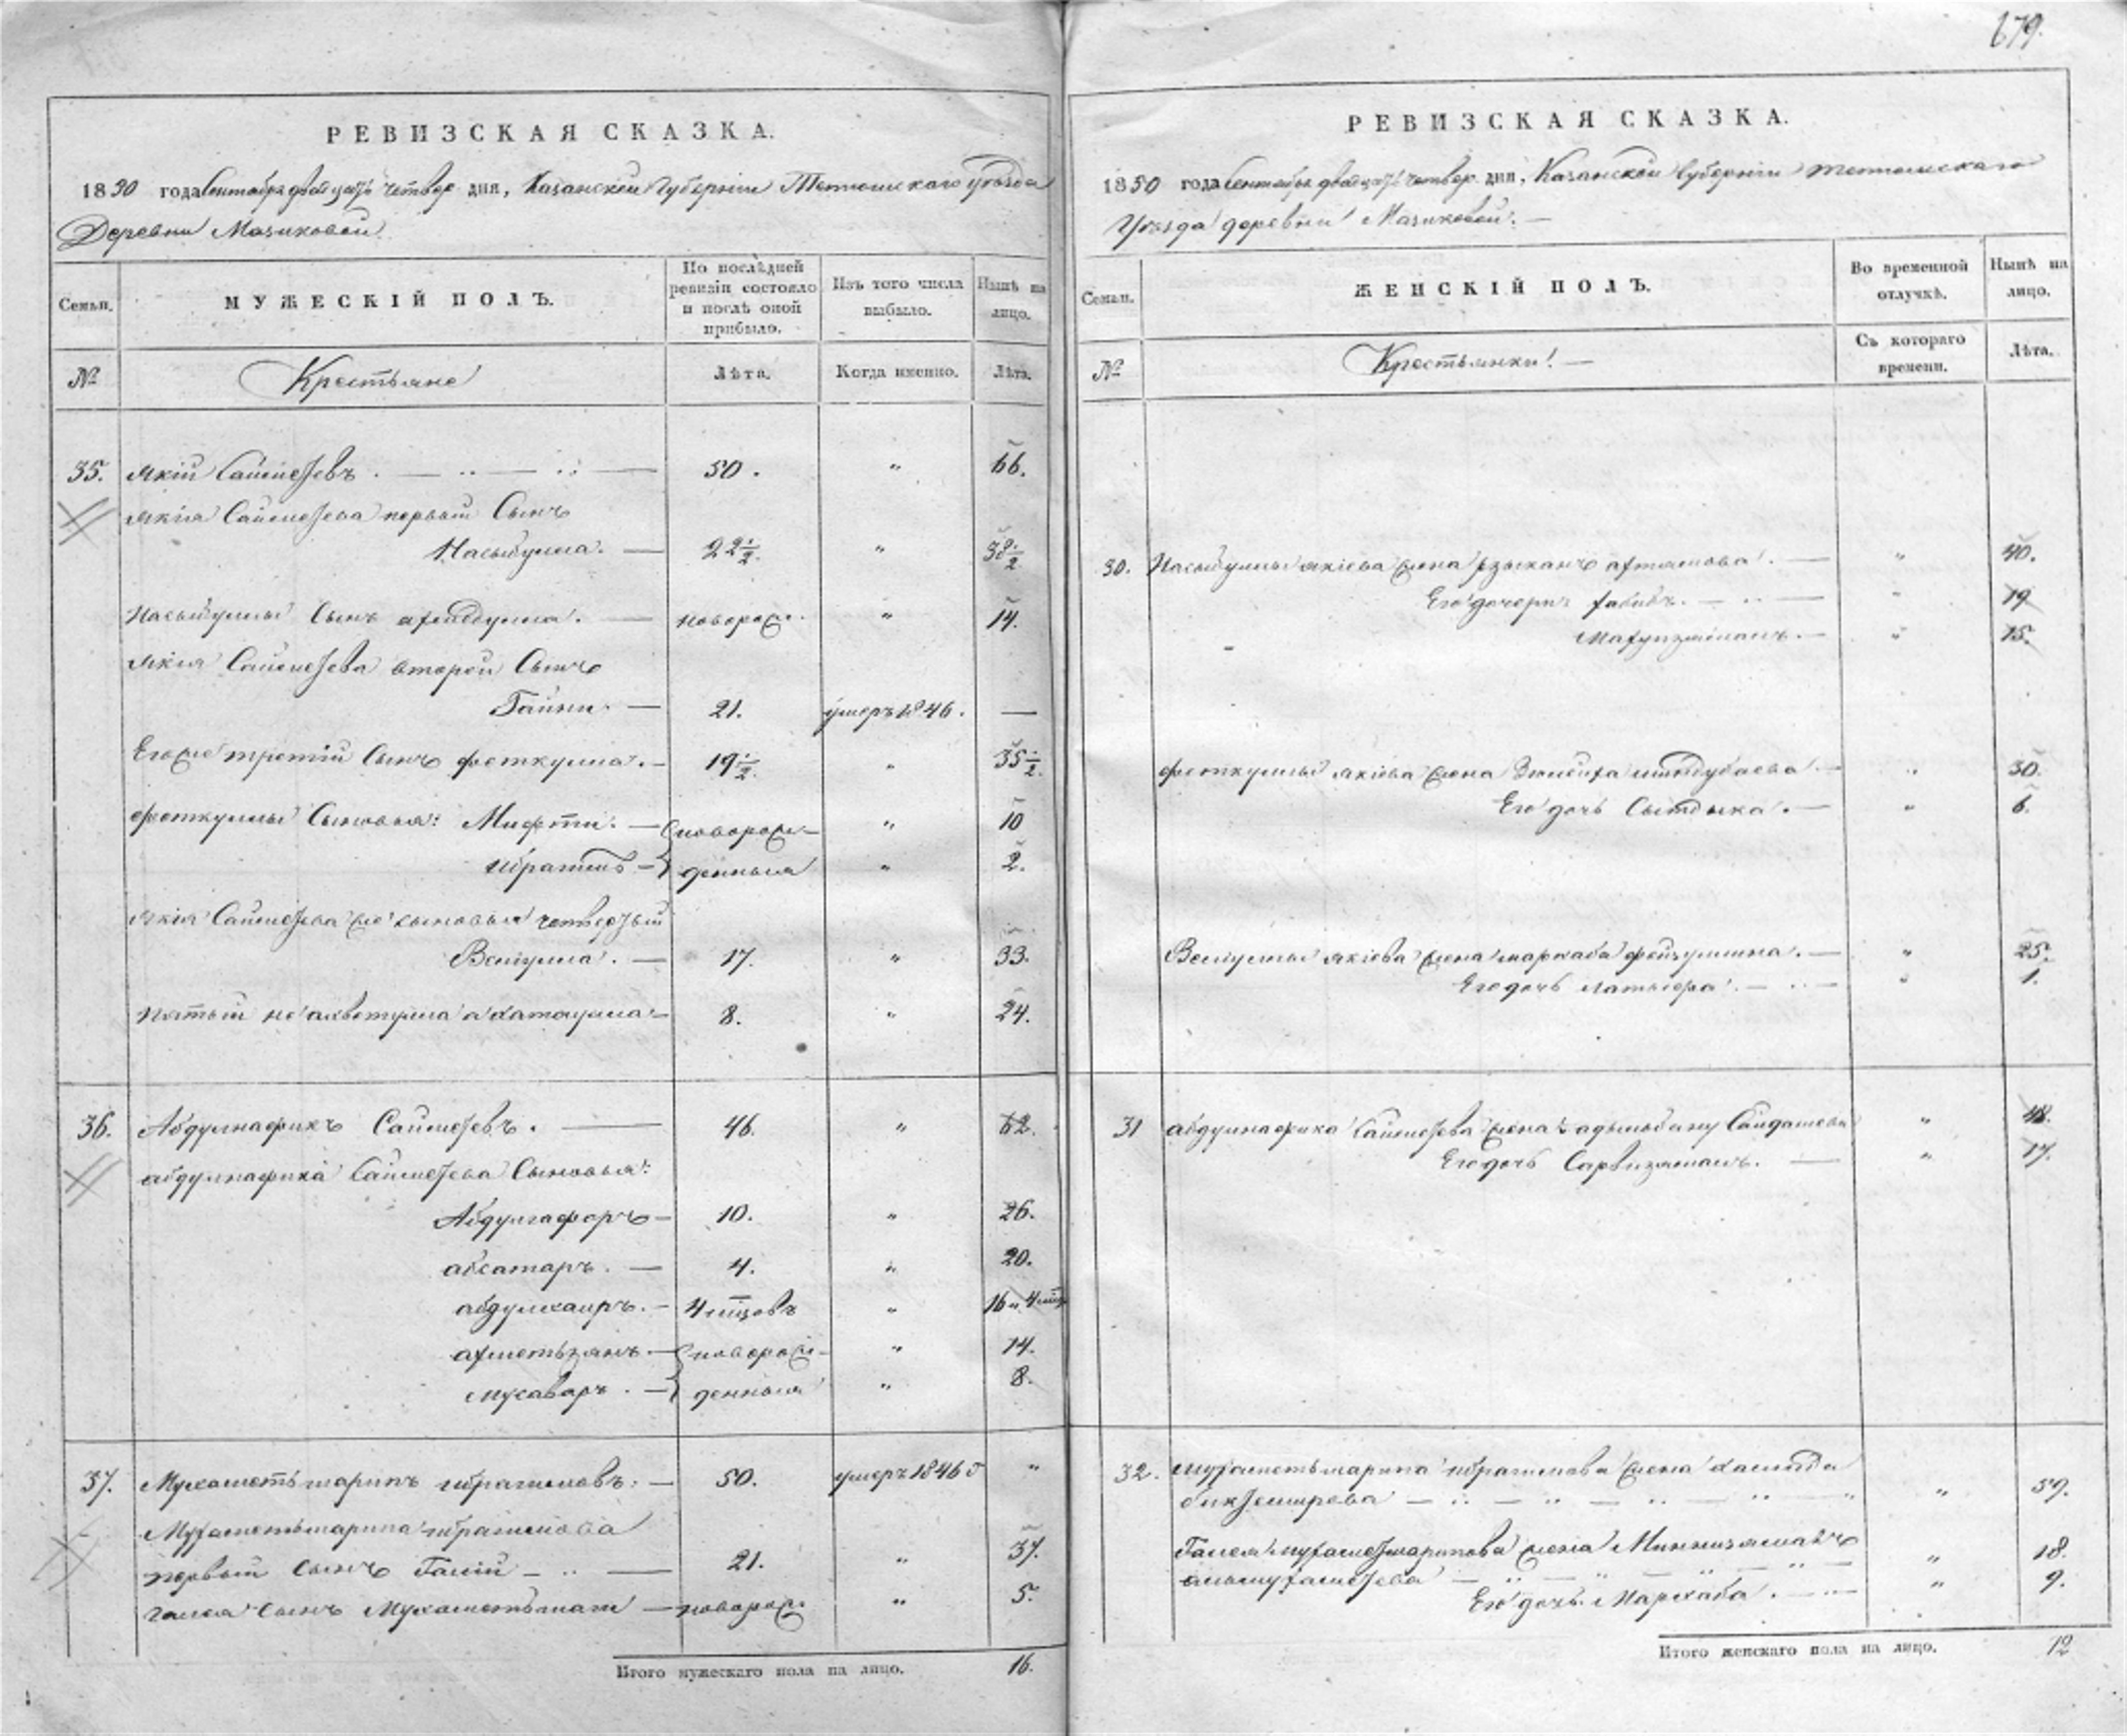 679.
РЕВИЗСКАЯ СКАЗКА.
1850 года Сентября двадцать четвер. дня, Казанской Губернiи Тетюшскаго уѣзда
Деревни Мазиковой
Семьи. МУЖЕСКIЙ ПОЛЪ. По послѣдней ревизiи состояло и послѣ оной прибыло. Изъ того числа выбыло. Нынѣ на лицо.
№ Крестьяне Лѣта. Когда именно. Лѣта.
35. Якiй Сайметевъ. 50. " 66.
Якiя Сайметева первый Сынъ
Насыбулла. 22½. " 38½
Насыбуллы Сынъ новорож. " 14.
Якiя Сайметева второй Сынъ
Гайни. 21. умеръ 1846. —
Егоже третiй Сынъ феткулла. 19½. " 35½.
феткуллы Сыновья: Мифти. новорож- " 10
Ибрагимъ денныя " 2.
Якiя Сайметева же сыновья четвертый
Велiулла. 17. " 33.
пятый не а 8. " 24.
36. Абдулнафикъ Сайметевъ. 46. " 62.
абдулнафика Сайметева Сыновья:
Абдулгафоръ 10. " 26.
абсатаръ. 4. " 20.
абдулхаиръ. 4 мѣсцовъ " 16 и 4 мѣс
ахметьзянъ. новорож- " 14.
мусаваръ. денныя " 8.
37. Мухаметьшарипъ ибрагимовъ. 50. умеръ 1846 "
Мухаметьшарипа ибрагимова
первый сынъ Галiй 21. " 37.
Галея сынъ новорож. " 5.
Итого мужескаго пола на лицо. 16.
РЕВИЗСКАЯ СКАЗКА.
1850 года Сентября двадцать четвер. дня, Казанской Губернiи тетюшскаго
Уѣзда деревни Мазиковой.
Семьи. ЖЕНСКIЙ ПОЛЪ. Во временной отлучкѣ. Нынѣ на лицо.
№ Крестьянки! Съ котораго времени. Лѣта.
30. Насыбуллы якiева жена артамова. " 40.
Его дочери: " 19
" 15.
феткуллы якiева жена " 30.
Его дочь Сытдыка. " 6.
Велiуллы якiева жена мархаба фейзуллина. " 25.
Его дочь " 1.
31 абдулнафика Сайметева жена Сайдашева " 48.
Его дочь Сарвизямалъ. " 17.
32. Мухаметьшарипа ибрагимова жена
" 59.
Галея мухаметшарипова жена Миннизямалъ
альмухаметева " 18.
Его дочь Мархаба. " 9.
Итого женскаго пола на лицо. 12